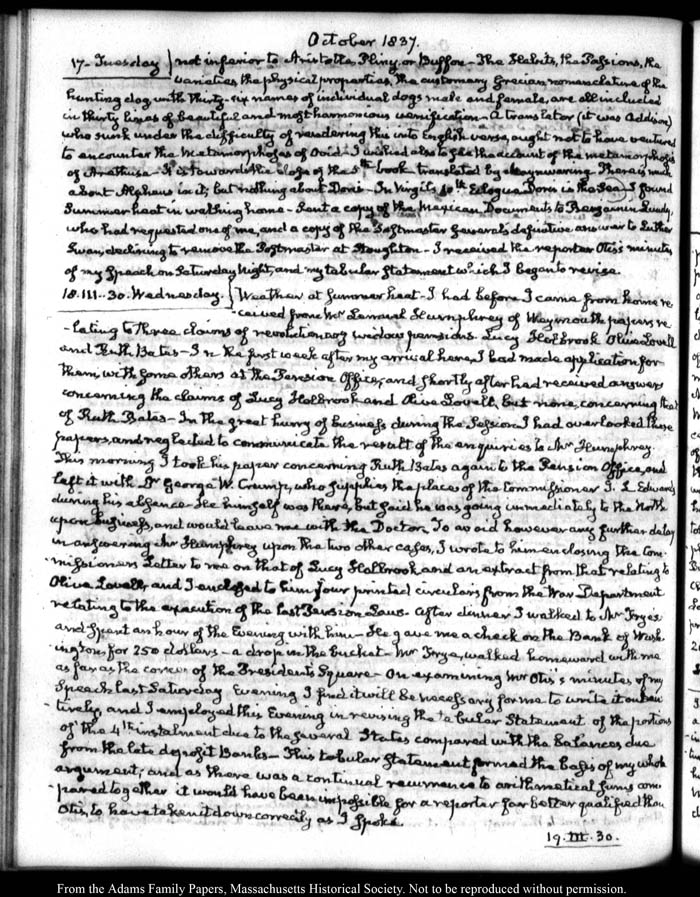 October 1837.
17. Tuesday } not inferior to Aristotle, Pliny, or Buffon - The Habits, the Passions, the
varieties, the physical properties, the customary Grecian nomenclature of the
hunting dog, with thirty-six names of individual dogs male and female, are all included
in thirty lines of beautiful and most harmonious versification - A translator (it was Addison)
who sunk under the difficulty of rendering this into English verse, ought not to have ventured
to encounter the Metamorphoses of Ovid - I wished also to see the account of the metamorphosis
of Arethusa - It is towards the close of the 5th. book translated by Maynwaring - There is much
about Alpheus in it; but nothing about Doris - In Virgil's 10th. Eclogue Doris is the Sea - I found
Summer heat in walking home - Sent a copy of the Mexican Documents to Benjamin Lundy,
who had requested one of me, and a copy of the Postmaster General's definitive answer to Luther
Swan, declining to remove the Postmaster at Stoughton - I received the reporter Otis's minutes
of my Speech on Saturday Night, and my tabular Statement which I began to revise.
18. III. 30. Wednesday. } Weather at Summer heat - I had before I came from home re
ceived from Mr Lemuel Humphrey of Weymouth papers re
-lating to three claims of revolutionary widow pensions. Lucy Holbrook Olive Lovell
and Ruth Bates - In the first week after my arrival here, I had made application for
them, with some others at the Pension Office, and shortly after had received answers
concerning the claims of Lucy Holbrook and Olive Lovell, but none, concerning that
of Ruth Bates - In the great hurry of business during the Session I had overlooked these
papers, and neglected to communicate the result of the enquiries to Mr Humphrey.
This morning I took his paper concerning Ruth Bates again to the Pension Office, and
left it with Dr George W. Crump, who supplies the place of the Commissioner J. L. Edwards
during his absence - He himself was there, but said he was going immediately to the North
upon business, and would leave me with the Doctor. To avoid however any further delay
in answering Mr Humphrey upon the two other cases, I wrote to him enclosing the Com-
missioners Letter to me on that of Lucy Holbrook and an extract from that relating to
Olive Lovell, and I enclosed to him four printed circulars from the War Department
relating to the execution of the last Pension Laws. After dinner I walked to Mr Frye's
and spent an hour of the Evening with him - He gave me a check on the Bank of Wash-
ington for 250 dollars - a drop in the bucket - Mr Frye, walked homeward with me
as far as the corner of the President's Square - On examining Mr Otis's minutes of my
Speech last Saturday Evening I find it will be necessary for me to write it out en
tirely, and I employed this Evening in revising the tabular Statement of the portions
of the 4th instalment due to the several States compared with the balances due
from the late deposit Banks - This tabular Statement formed the basis of my whole
argument; and as there was a continual recurrence to arithmetical sums com
-pared together it would have been impossible for a reporter far better qualified than
Otis, to have taken it down correctly as I spoke.
19. III. 30.
From the Adams Family Papers, Massachusetts Historical Society. Not to be reproduced without permission.